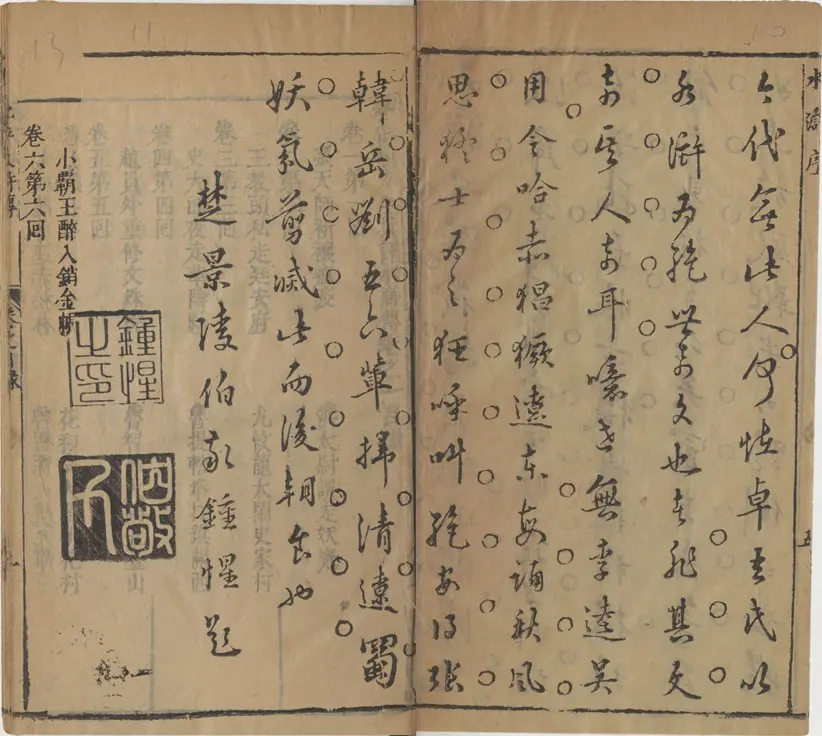 水滸序
五
今代無此人何怪卓吾氏以
水滸為絕世奇文也者非其文
奇其人奇耳噫世無李逵吳
用令哈赤猖獗遼東每誦秋風
思猛士為之狂呼叫絕安得張
韓岳劉五六輩掃清遼蜀
妖氛剪滅此而後朝食也
楚景陵伯敬鍾惺題
鍾惺之印
伯敬
小霸王醉入銷金帳
卷六第六回